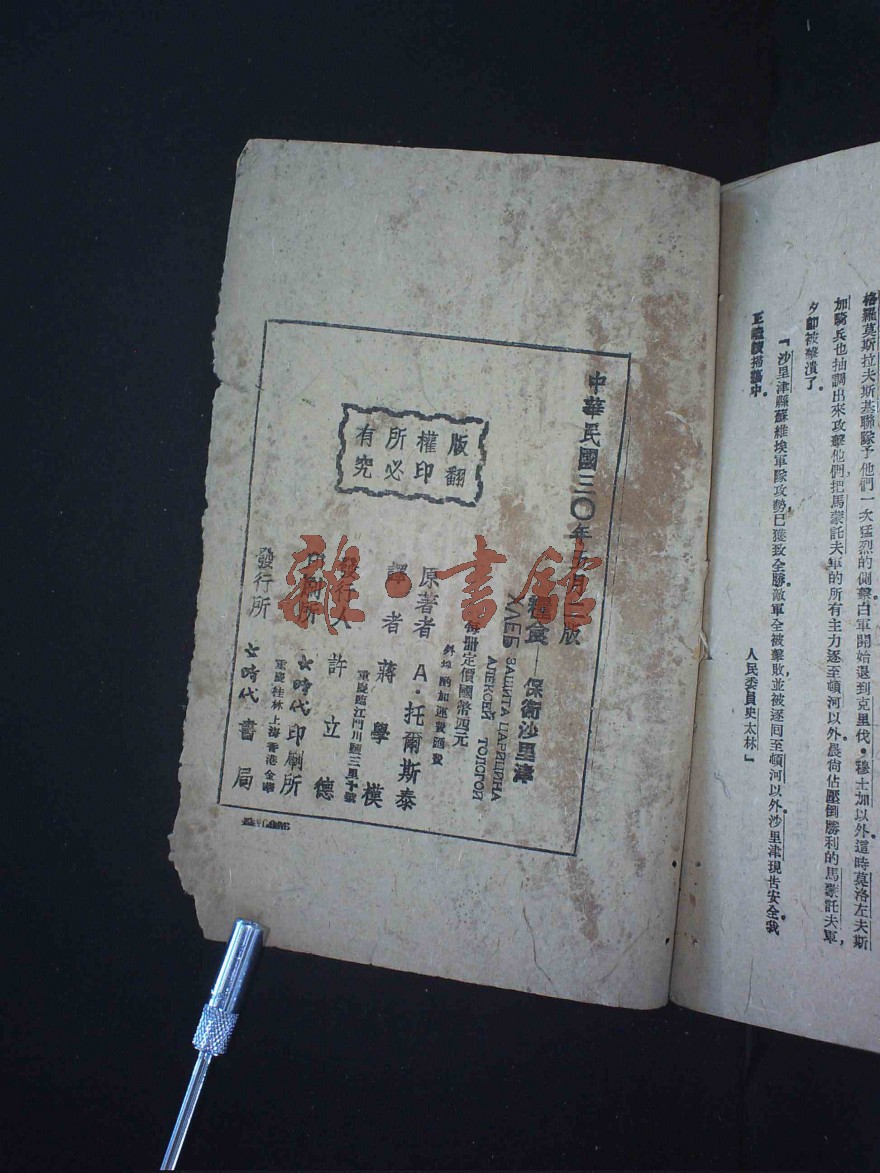 格羅莫斯拉夫斯基聯隊予他們一次猛烈的側擊白軍開始退到克里伐•穆士加以外這時莫洛左夫斯
加騎兵也抽調出來攻擊他們,把馬蒙託夫軍的所有主力逐至頓河以外。晨尚佔壓倒勝利的馬蒙託夫軍,
夕卽被擊潰了。
『沙里津縣蘇維埃軍隊攻勢已獲致全勝敵軍全被擊敗並被逐囘至頓河以外沙里津現吿安全我
正繼續掃蕩中。
人民委員史太林』
中華民國三〇年 月 版
糧食——保衛沙里津
ХЛЕБ ЗАЩИТА ЦАРИЦИНА
АЛЕКСЕЙ ТОЛСТОЙ
每册定價國幣四元
外埠酌加運費匯費
原著者 A•托爾斯泰
譯者 蔣學模
重慶臨江門川鹽三里十號
發行人 許立德
印刷所 七時代印刷所
重慶桂林上海香港金華
發行所 七時代書局
版權所有
翻印必究
雜•書館